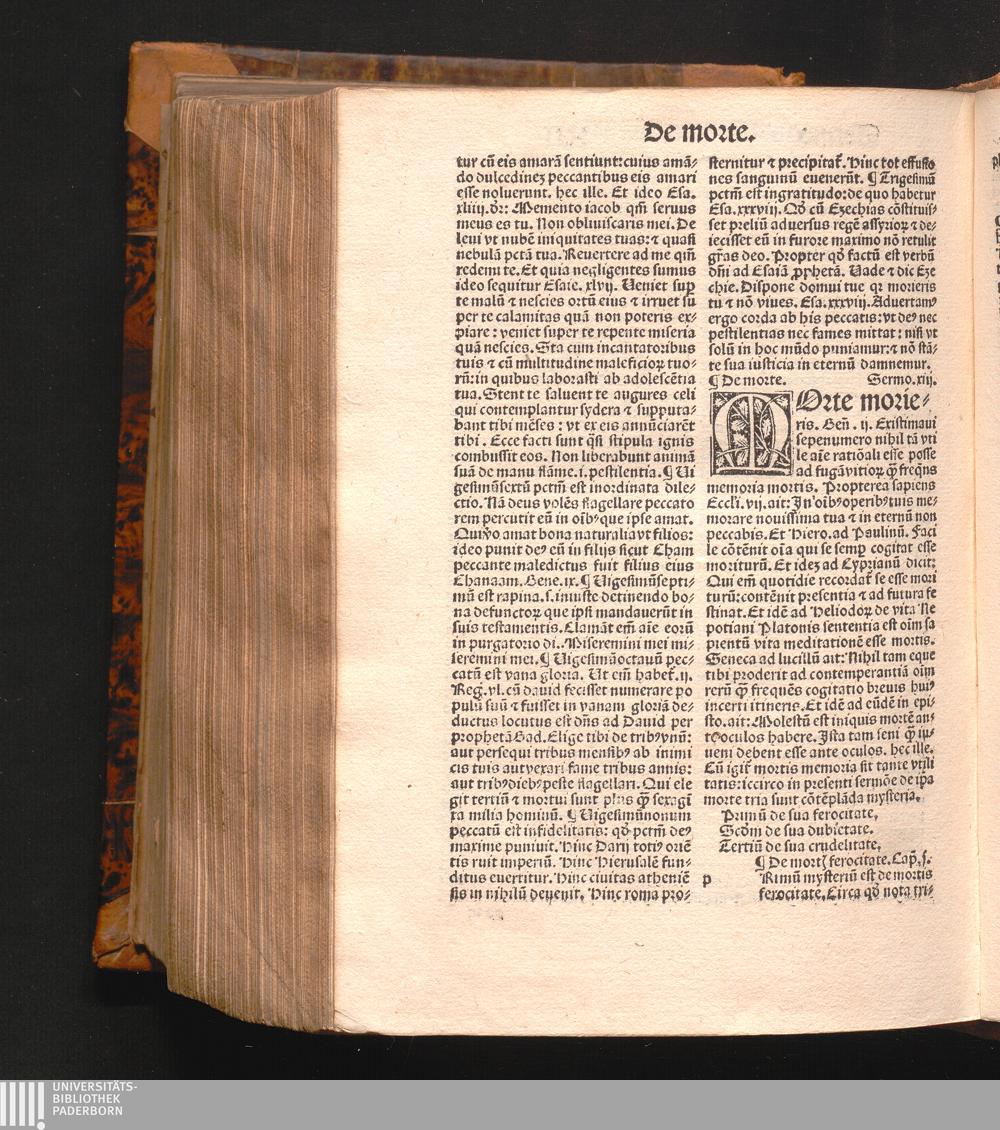 De morte.
tur cū eis amarā sentiunt: cuius amā⸗
do dulcedinez peccantibus eis amari
esse noluerunt. hec ille. Et ideo Esa.
xliiij. dr̄: Memento iacob qm̄ seruus
meus es tu. Non obliuiscaris mei. De
leui vt nubē iniquitates tuas: ⁊ quasi
nebulā pctā tua. Reuertere ad me qm̄
redemi te. Et quia negligentes sumus
ideo sequitur Esaie. xlvij. Ueniet sup̄
te malū ⁊ nescies ortū eius ⁊ irruet su
per te calamitas quā non poteris ex⸗
piare: veniet super te repente miseria
quā nescies. Sta cum incantatoribus
tuis ⁊ cū multitudine maleficioꝝ tuo⸗
rū: in quibus laborasti ab adolescētia
tua. Stent te saluent te augures celi
qui contemplantur sydera ⁊ supputa⸗
bant tibi mēses: vt ex eis annūciarēt
tibi. Ecce facti sunt q̄si stipula ignis
combussit eos. Non liberabunt animā
suā de manu flāme. i. pestilentia. ¶ Ui
gesimūsextū pctm̄ est inordinata dile⸗
ctio. Nā deus volēs flagellare peccato
rem percutit eū in oībꝰ que ipse amat.
Qui v̊o amat bona naturalia vt filios:
ideo punit deꝰ eū in filijs sicut Cham
peccante maledictus fuit filius eius
Chanaam. Gene. ix. ¶ Uigesimūsepti⸗
mū est rapina. s. iniuste detinendo bo⸗
na defunctoꝝ que ipsi mandauerūt in
suis testamentis. Clamāt em̄ aīe eorū
in purgatorio di.. Miseremini mei mi⸗
seremini mei. ¶ Uigesimūoctauū pec⸗
catū est vana gloria. Ut em̄ habet̄. ij.
Reg. vl. cū dauid fecisset numerare po
pulū suū ⁊ fuisset in vanam gloriā de⸗
ductus locutus est dn̄s ad Dauid per
prophetā Gad. Elige tibi de tribꝰ vnū:
aut persequi tribus mensibꝰ ab inimi
cis tuis aut vexari fame tribus annis:
aut tribꝰ diebꝰ peste flagellari. Qui ele
git tertiū ⁊ mortui sunt plus q̄ sexagī
ta milia hominū. ¶ Uigesimūnonum
peccatū est infidelitatis: qd̄ pctm̄ deꝰ
maxime puniuit. Hinc Darij totiꝰ oriē
tis ruit imperiū. Hinc Hierusalē fun⸗
ditus euertitur. Hinc ciuitas atheniē
sis in nihilū deuenit. Hinc roma pro⸗
sternitur ⁊ precipitat̄. Hinc tot effusio
nes sanguinū euenerūt. ¶ Trigesimū
pctm̄ est ingratitudo: de quo habetur
Esa. xxxviij. Qd̄ cū Ezechias cōstituis⸗
set preliū aduersus regē assyrioꝝ ⁊ de⸗
iecisset eū in furore maximo nō retulit
gr̄as deo. Propter qd̄ factū est verbū
dn̄i ad Esaiā ꝓphetā. Uade ⁊ dic Eze
chie. Dispone domui tue qr̄ morieris
tu ⁊ nō viues. Esa. xxxviij. Aduertamꝰ
ergo corda ab his peccatis: vt deꝰ nec
pestilentias nec fames mittat: nisi vt
solū in hoc mūdo puniamur: ⁊ nō stā⸗
te sua iusticia in eternū damnemur.
¶ De morte. Sermo. xij.
MOrte morie⸗
ris. Gen̄. ij. Existimaui
sepenumero nihil tā vti
le aīe ratiōali esse posse
ad fugā vitioꝝ q̄ freq̄ns
memoria mortis. Propterea sapiens
Eccl'i. vij. ait: In oībꝰ operibꝰ tuis me⸗
morare nouissima tua ⁊ in eternū non
peccabis. Et Hiero. ad Paulinū. Faci
le cōtēnit oīa qui se semp̄ cogitat esse
moriturū. Et idez ad Cyprianū dicit:
Qui em̄ quotidie recordat̄ se esse mori
turū: contēnit presentia ⁊ ad futura fe
stinat. Et idē ad Heliodoꝝ de vita Ne
potiani Platonis sententia est oīm sa
pientū vita meditationē esse mortis.
Seneca ad lucillū ait: Nihil tam eque
tibi proderit ad contemperantiā oīm
rerū q̄ frequēs cogitatio breuis huiꝰ
incerti itineris. Et idē ad eūdē in epi⸗
sto. ait: Molestū est iniquis mortē an⸗
te oculos habere. Ista tam seni q̄ iu⸗
ueni debent esse ante oculos. hec ille.
Cū igit̄ mortis memoria sit tante vtili
tatis: iccirco in presenti sermōe de ip̄a
morte tria sunt cōtēplāda mysteria.
Primū de sua ferocitate.
Scd̄m de sua dubietate.
Tertiū de sua crudelitate.
¶ De mortꝭ ferocitate. Cap̄. j.
p Rimū mysteriū est de mortis
ferocitate. Circa qd̄ nota tri⸗
UNIVERSITÄTS-
BIBLIOTHEK
PADERBORN